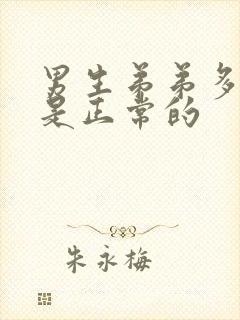 男生弟弟多
是正常的
朱永梅